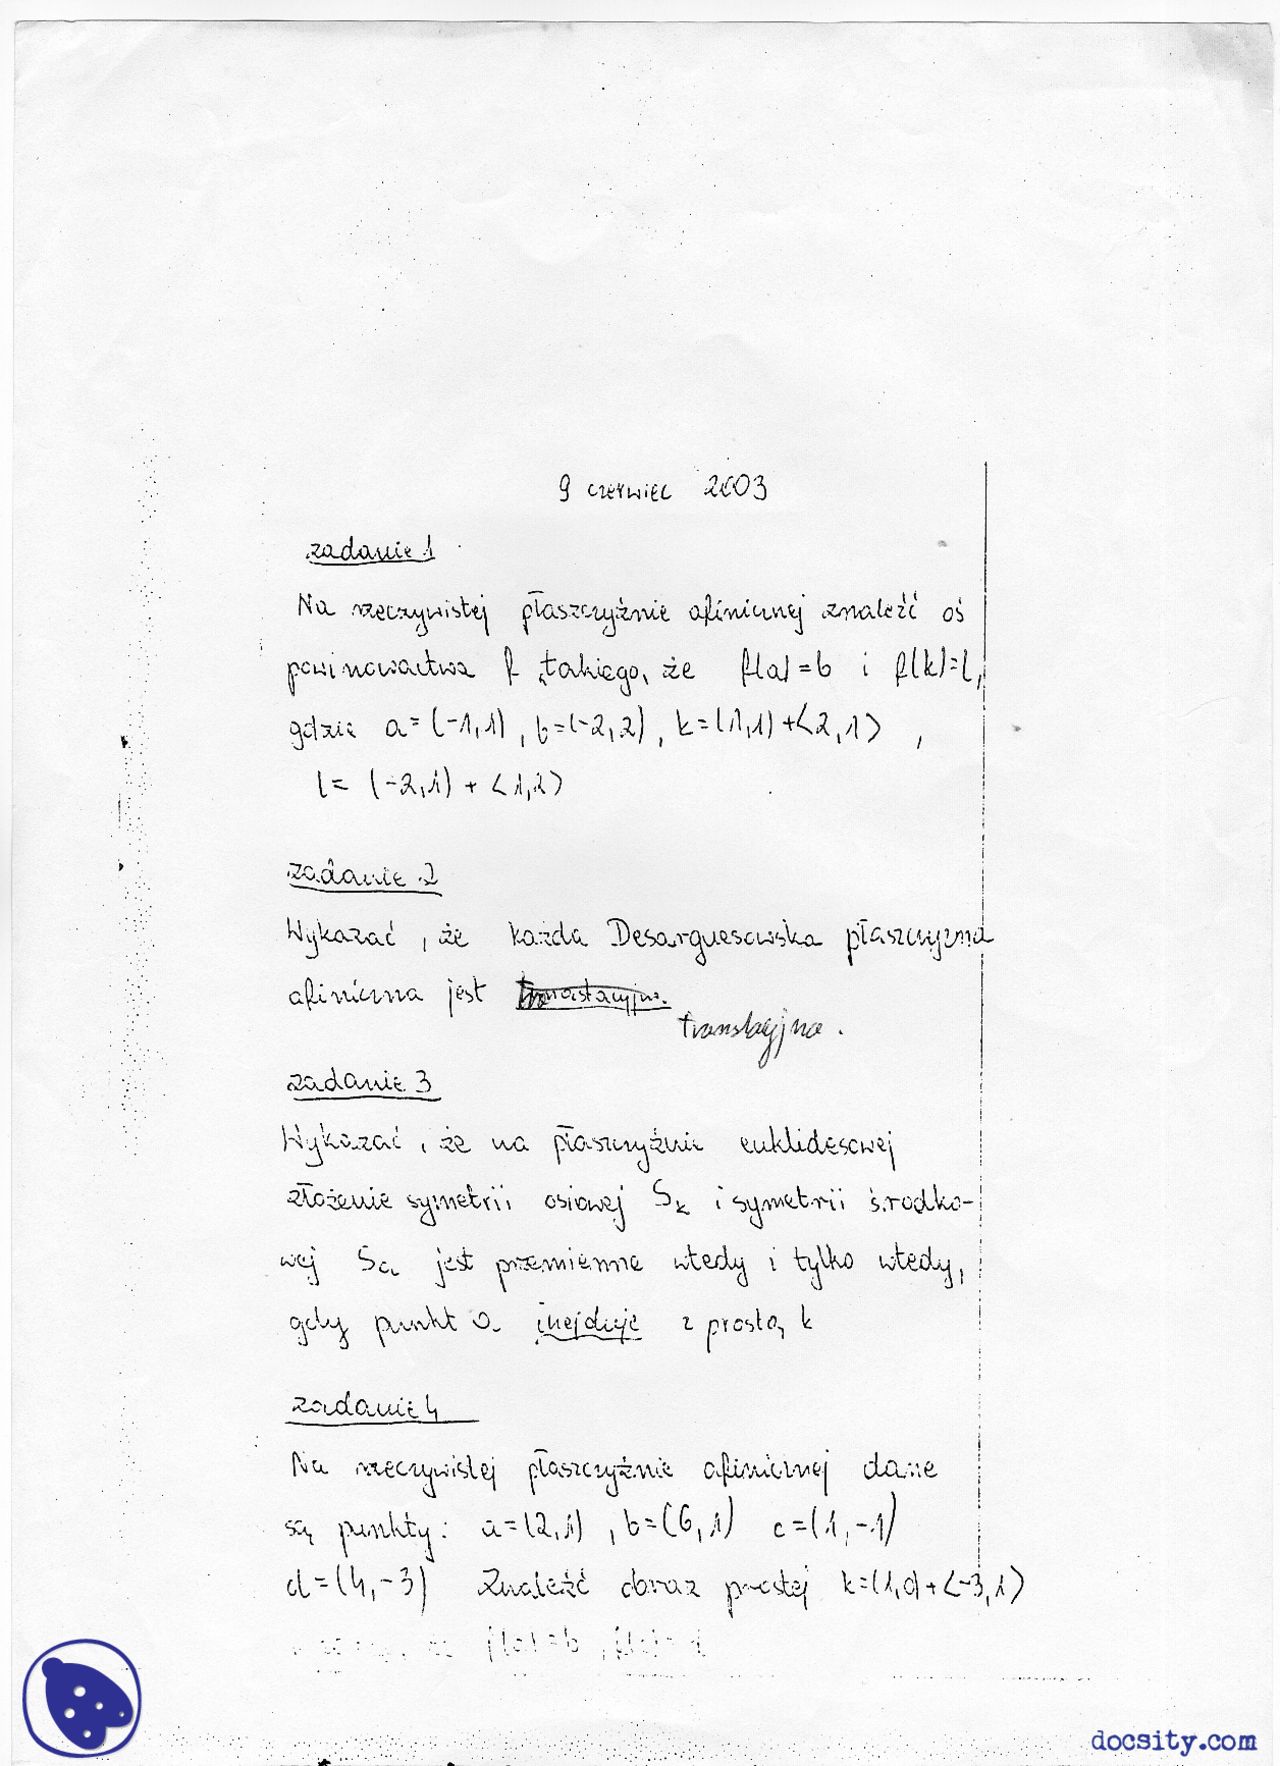 9 czerwiec 2003
zadanie 1
Na rzeczywistej płaszczyźnie afinicznej znaleźć oś
powinowactwa f takiego, że f(a)=b i f(k)=l,
gdzie a=(-1,1), b=(-2,2), k=(1,1)+<2,1>,
l=(-2,1)+<1,2>
zadanie 2
Wykazać, że każda Desarguesowska płaszczyzna
afiniczna jest
translacyjna.
zadanie 3
Wykazać, że na płaszczyźnie euklidesowej
złożenie symetrii osiowej Sk i symetrii środko-
wej Sa jest przemienne wtedy i tylko wtedy,
gdy punkt a incyduje z prostą k
zadanie 4
Na rzeczywistej płaszczyźnie afinicznej dane
są punkty: a=(2,1), b=(6,1) c=(1,-1)
d=(4,-3) Znaleźć obraz prostej k=(1,0)+<-3,1>
f(a)=b,
docsity.com